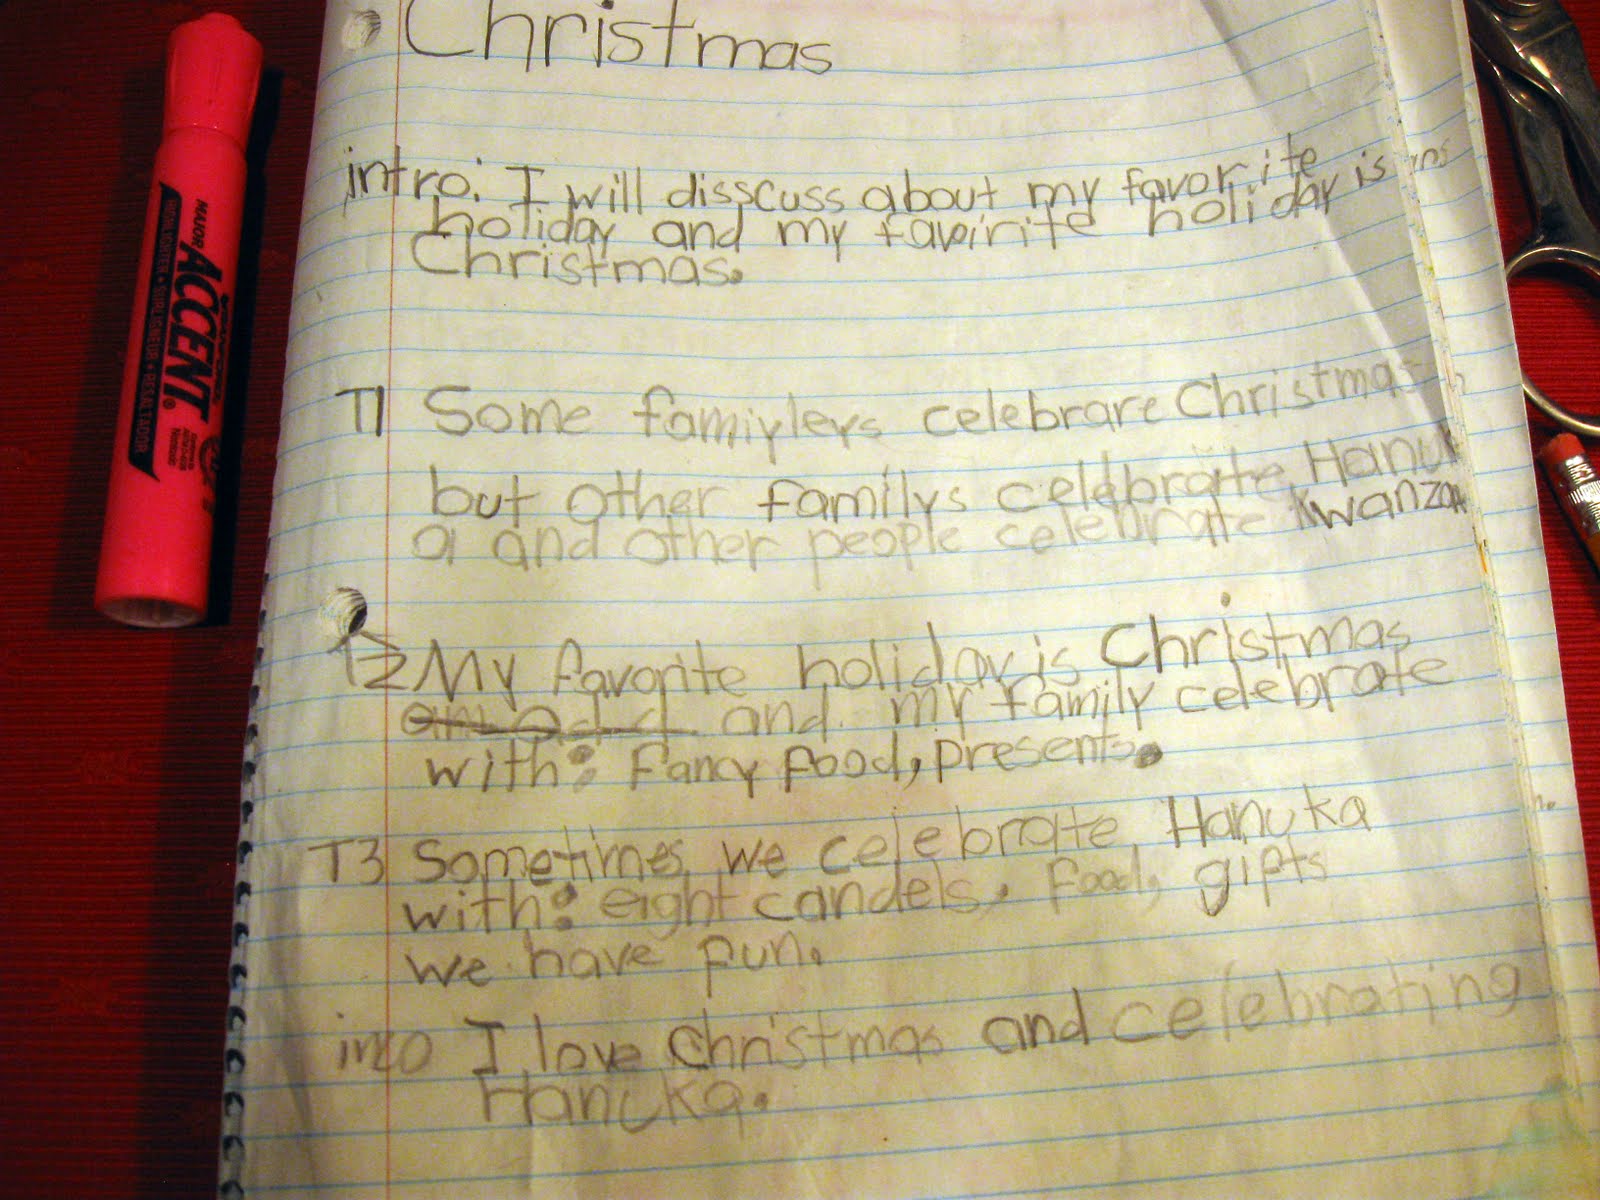 Christmas
intro. I will disscuss about my favorite
holiday and my favirite holiday is
Christmas.
T1 Some famiylers celebrare Christmas
but other familys celebrate Hanuk
a and other people celebrate Kwanzaa
T2 My favorite holiday is Christmas
and my family celebrate
with: Fancy food, presents.
T3 Sometimes we celebrate Hanuka
with: eight candels, food, gifts
we have fun.
I love Christmas and celebrating
Hanuka.
MAJOR
ACCENT
HIGHLIGHTER • SURLIGNEUR • RESALTADOR